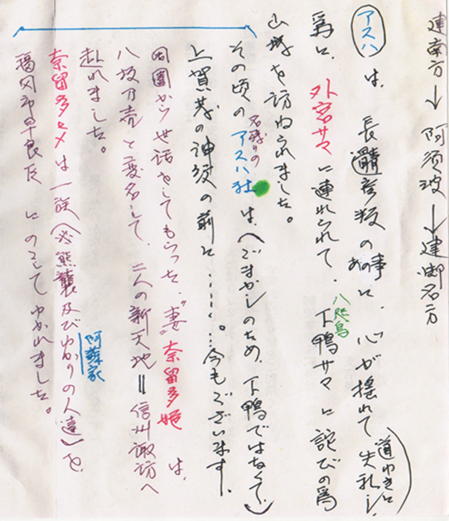 建南方→阿須波→建御名方
アスハは、長髄彦叛のあの事に、心が揺れて失礼し(道ゆきに)
為に、外宮サマに連れられて、八咫烏 下鴨サマに詫びの為
山城を訪ねられました。
その頃の名残りのアスハ社は、(ごまかしのため、下鴨ではなくて)
上賀茂の神殿の前に………。今もございます。
周囲から世話をしてもらった“妻 奈留多姫は、
八坂刀売と変名して、二人の新天地=信州諏訪へ
赴れました。
奈留多ヒメは一族(必熊襲及びゆかりの人達)を 阿蘇家
福岡市早良区にのこしてゆかれました。